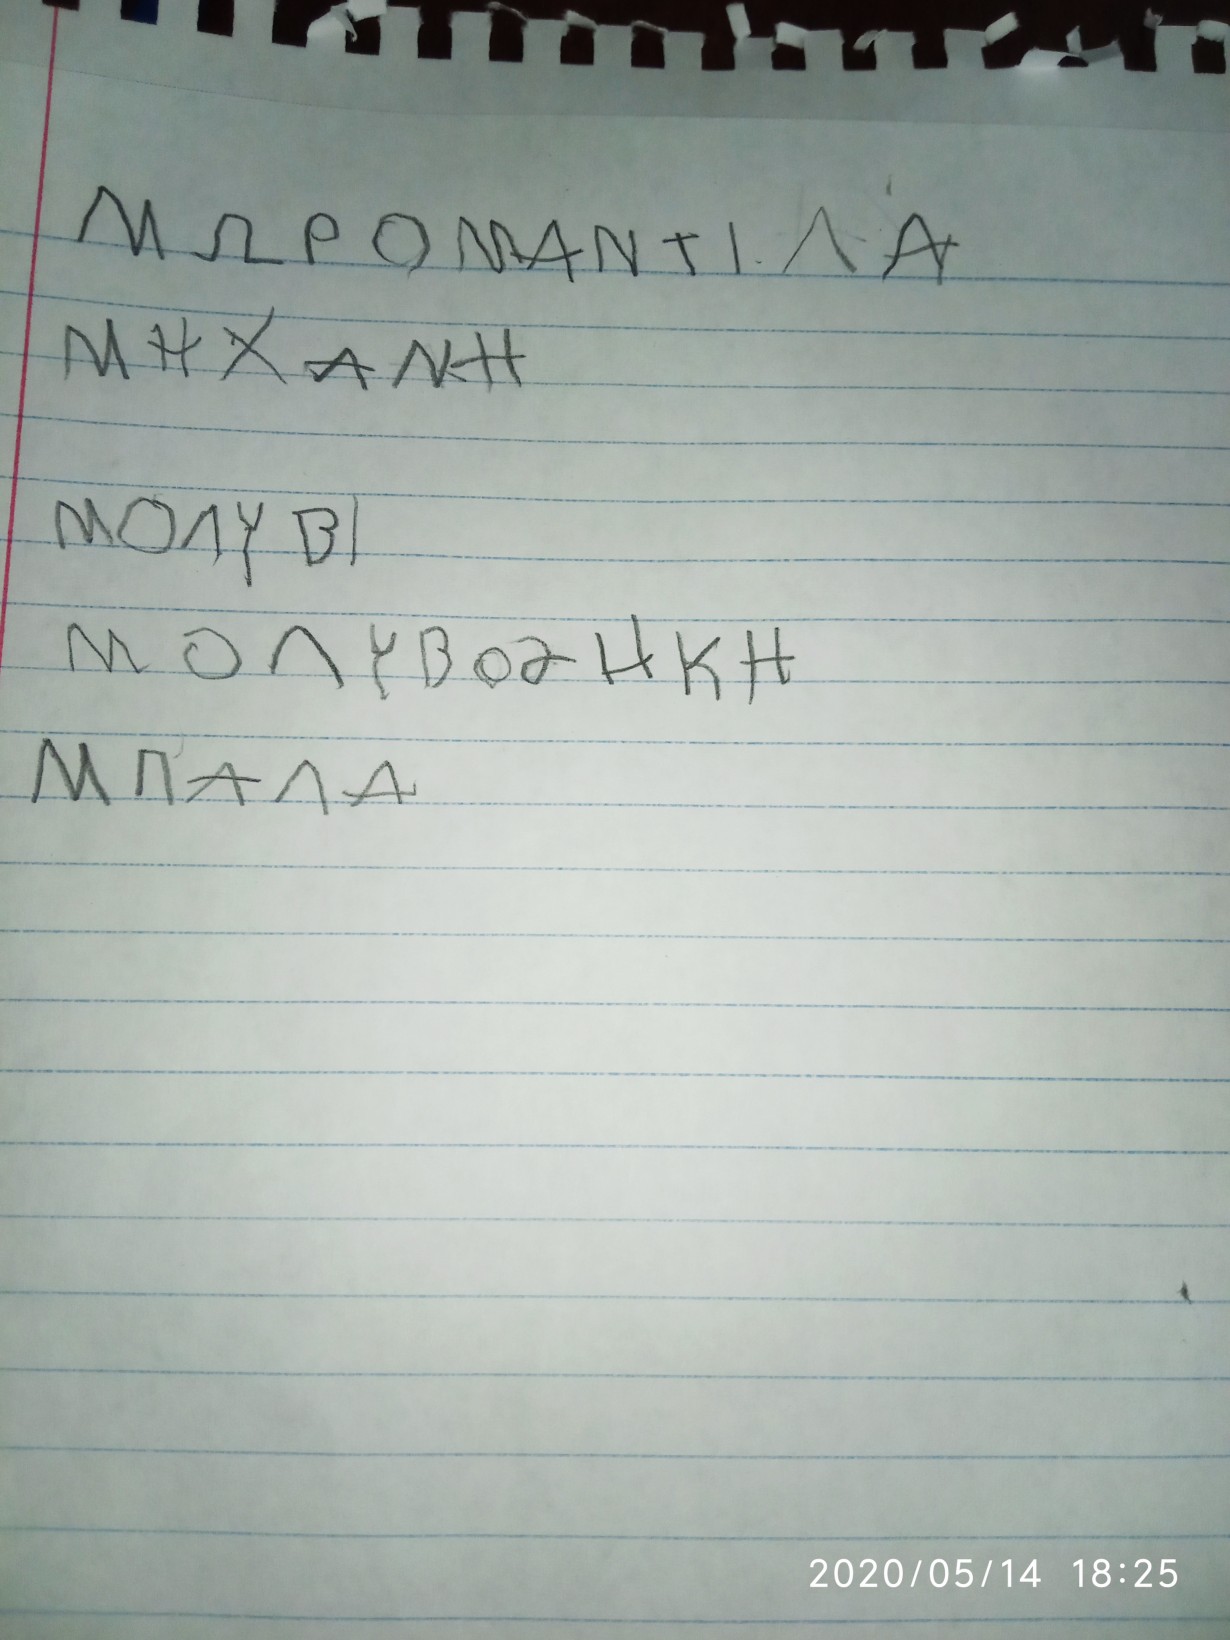 ΜΩΡΟΜΑΝΤΙΛΑ
ΜΗΧΑΝΗ
ΜΟΛΥΒΙ
ΜΟΛΥΒΟΘΗΚΗ
ΜΠΑΛΑ
2020/05/14 18:25